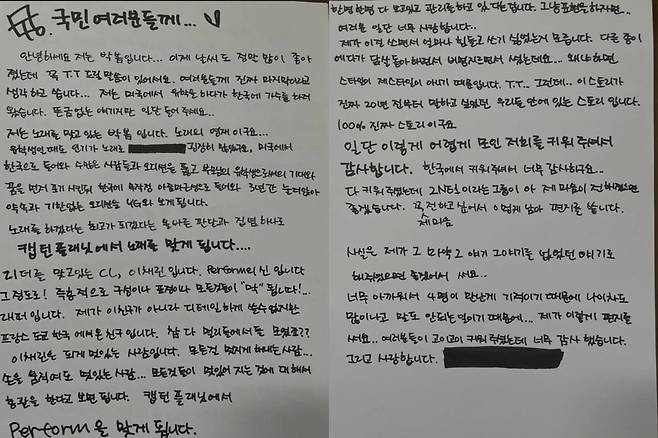 To. 국민 여러분들께...
안녕하세요 저는 박봄입니다... 이제 날씨도 정말 많이 좋아
졌는데 꼭 T.T 드릴 말씀이 있어서요. 여러분들께 진짜 마지막이라고
생각하고 씁니다... 저는 미국에서 유학을 하다가 한국에 가수를 하러
왔습니다. 뜬금없는 얘기지만 일단 들어 주세요...
저는 노래를 맡고 있는 박봄 입니다. 노래의 명재 이구요...
유학생인때도 인기가 노래로 굉장히 많았구요, 미국에서
한국으로 들어와 수많은 사람들과 오디션을 뚫고 부모님의 유학생으로서의 기대와
꿈을 먼저 포기 시킨뒤 한국에 무작정 아르바이트생으로 들어와 3년간 눈떠양아
약속과 기한없는 오디션을 YG와 보게 됩니다.
노래를 하겠다는 최고가 되겠다는 올바른 판단과 집념 하나로
캡턴 플래닛에서 노래를 맡게 됩니다....
리더를 맡고있는 CL, 이채린 입니다. Perform의 신 입니다
그 정도로! 즉흥적으로 구성이나 표정이나 모든것들이 "딱" 됩니다!...
래퍼 입니다. 제가 이친구가 아니라 디테일하게 쓸수 없지만
프랑스 도쿄 한국 에서 온 친구 입니다. 참 다 멀리들에서 들 모였죠??
이채린은 되게 멋있는 사람입니다. 모든걸 멋지게 해내는 사람...
손을 움직여도 멋있는 사람... 모든것들이 멋있어 지는 것에 대해서
총괄을 한다고 보면 됩니다. 캡턴 플래닛에서
Perform을 맡게 됩니다.
한명 한명 다 보고있고 관리를 하고 있다는 겁니다. 그냥 표현을 하자면...
여러분 일단 너무 사랑합니다...
제가 이걸 쓰면서 얼마나 힘들고 쓰기 싫었는지 모릅니다. 다른 종이
에다가 답답놓아하면서 버렸지면서 썼는데요... 왜냐하면
스타일이 제스타일이 아니기 때문입니다. T.T... 그런데... 이 스토리가
진짜 20번 전부터 말하고 싶었던 우리들 안에 있는 스토리 입니다.
100% 진짜 스토리 이구요
일단 이렇게 어렵게 모인 저희를 키워 주셔서
감사합니다. 한국에서 키워주셔서 너무 감사하구요...
다 키워주셨는데 2NE1 이라는 그룹이 아 제 마음이 전해졌으면
좋겠습니다. 꼭 전하고 싶어서 이렇게 남아 편지를 씁니다.
제 마음
사실은 제가 그 마약 그 얘기 그 이야기를 넘었던 얘기로
해주셨으면 좋겠어서 써요...
너무 아까워서 4명이 만난게 기적이기 때문에 나이차도
많이나고 말도 안되는 일이기 때문에... 제가 이렇게 편지를
써서요.. 여러분들이 고이고이 키워 주셨는데 너무 감사 했습니다.
그리고 사랑합니다.